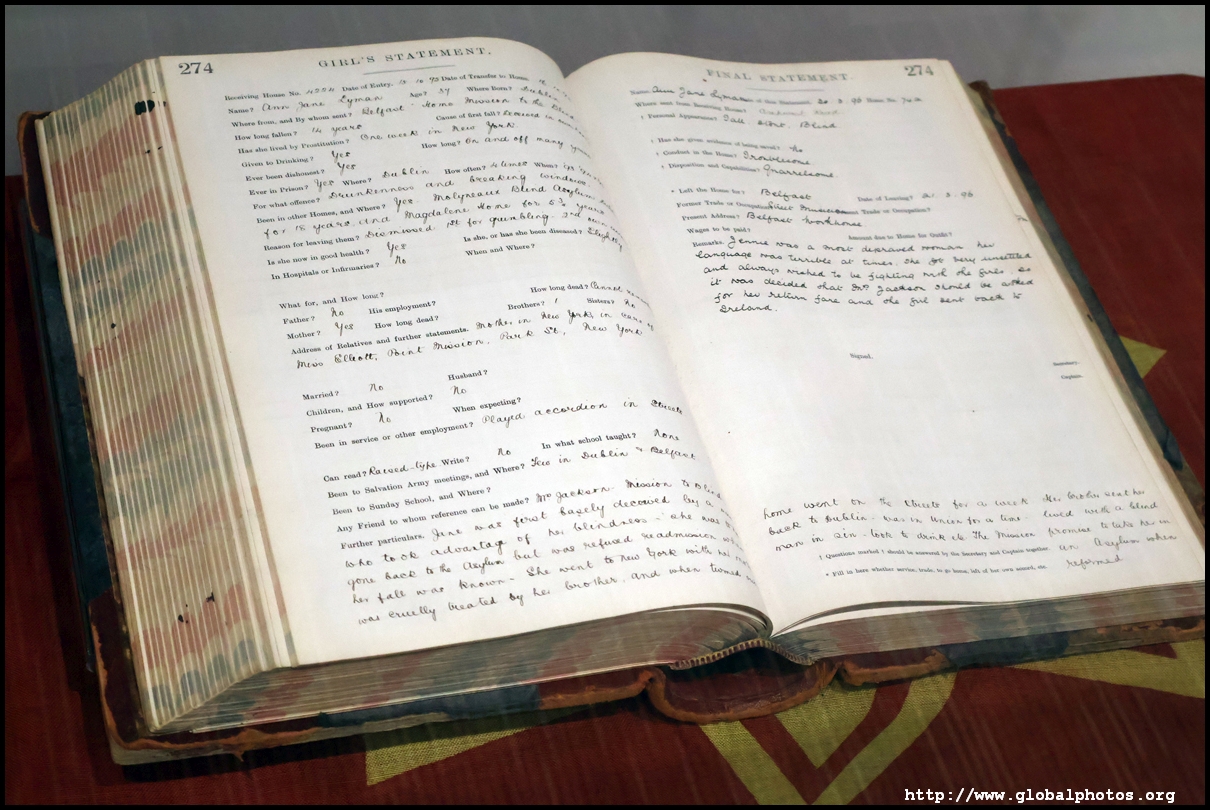 274
GIRL'S STATEMENT.
Receiving House No. 4554 Date of Entry. 18 10 95 Date of Transfer to Home.
Name? Ann Jane Lyman Age? 37 Where Born? Dublin
Where from, and By whom sent? Belfast - Home Mission to the Blind
How long fallen? 14 years Cause of first fall?
Has she lived by Prostitution? One week in New York
Given to Drinking? Yes How long? On and off many years
Ever been dishonest? Yes
Ever in Prison? Yes Where? Dublin How often? 4 times When?
For what offence? Drunkenness and breaking windows.
Been in other Homes, and Where? Yes. Molyneaux Blind Asylum
for 18 years and Magdalene Home for 5½ years
Reason for leaving them? Dismissed 1st for grumbling. 2nd
Is she now in good health? Yes Is she, or has she been diseased? Slightly
In Hospitals or Infirmaries? No When and Where?
What for, and How long?
Father? No His employment? How long dead? Cannot
Mother? Yes How long dead? Brothers? 1 Sisters? No
Address of Relatives and further statements. Mother in New York, in care of
Miss Elliott, Point Mission, Park St., New York
Married? No Husband?
Children, and How supported? No
Pregnant? No When expecting?
Been in service or other employment? Played accordion in streets
Can read? Raised-type Write? No In what school taught? None
Been to Salvation Army meetings, and Where? Few in Dublin & Belfast
Been to Sunday School, and Where?
Any Friend to whom reference can be made? Mr Jackson Mission to Blind
Further particulars. Jane was first basely deceived by a
who took advantage of her blindness - she was
gone back to the Asylum but was refused readmission
her fall was known - She went to New York with her
was cruelly treated by her brother, and when turned
FINAL STATEMENT.
274
Name. Ann Jane Lyman of this Statement. 20 3 96 Home No.
Where went from Receiving House?
† Personal Appearance? Tall, stout, Blind
† Has she given evidence of being saved? No
† Conduct in the Home? Troublesome
† Disposition and Capabilities? Quarrelsome.
* Left the Home for? Belfast Date of Leaving? 21. 3. 96
Former Trade or Occupation? Street Musician Present Trade or Occupation?
Present Address? Belfast Workhouse
Wages to be paid? Amount due to Home for Outfit?
Remarks. Jennie was a most depraved woman her
language was terrible at times. She got very unsettled
and always wished to be fighting with the girls, so
it was decided that Mr Jackson should be asked
for her return fare and the girl sent back to
Ireland.
Signed,
Secretary.
Captain.
home went on the streets for a week Her brother sent her
back to Dublin - was in Union for a time - lived with a blind
man in sin - took to drink &c The Mission promise to take her in
† Questions marked † should be answered by the Secretary and Captain together. an Asylum when
* Fill in here whether service, trade, to go home, left of her own accord, etc. reformed
http://www.globalphotos.org